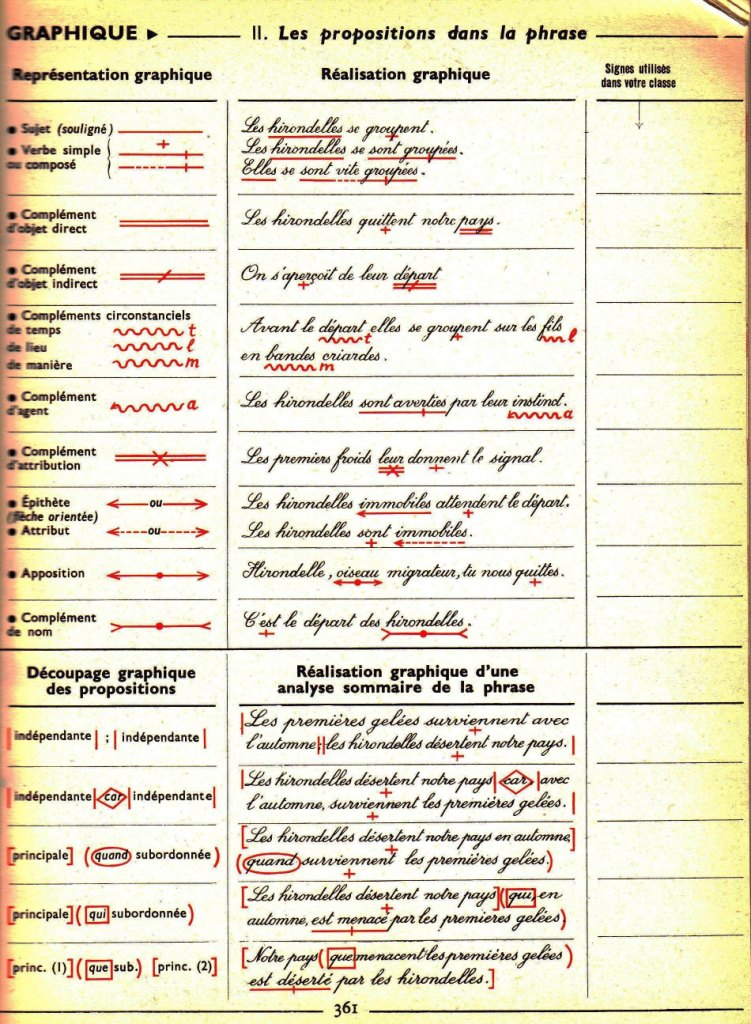 GRAPHIQUE ► II. Les propositions dans la phrase
Représentation graphique
Réalisation graphique
Signes utilisés
dans votre classe
• Sujet (souligné)
• Verbe simple
ou composé
Les hirondelles se groupent.
Les hirondelles se sont groupées.
Elles se sont vite groupées.
• Complément
d'objet direct
Les hirondelles quittent notre pays.
• Complément
d'objet indirect
On s'aperçoit de leur départ
• Compléments circonstanciels
de temps t
de lieu l
de manière m
Avant le départ elles se groupent sur les fils
t l
en bandes criardes.
m
• Complément
d'agent a
Les hirondelles sont averties par leur instinct.
a
• Complément
d'attribution
Les premiers froids leur donnent le signal.
• Épithète ou
(flèche orientée)
• Attribut ou
Les hirondelles immobiles attendent le départ.
Les hirondelles sont immobiles.
• Apposition
Hirondelle, oiseau migrateur, tu nous quittes.
• Complément
de nom
C'est le départ des hirondelles.
Découpage graphique
des propositions
Réalisation graphique d'une
analyse sommaire de la phrase
|indépendante| ; |indépendante|
|Les premières gelées surviennent avec
l'automne;||les hirondelles désertent notre pays.|
|indépendante| car |indépendante|
|Les hirondelles désertent notre pays| car, |avec
l'automne, surviennent les premières gelées.|
[principale] (quand subordonnée)
[Les hirondelles désertent notre pays en automne,]
(quand surviennent les premières gelées.)
[principale] (qui subordonnée)
[Les hirondelles désertent notre pays] (qui, en
automne, est menacé par les premières gelées)
[princ. (1)] (que sub.) [princ. (2)]
[Notre pays (que menacent les premières gelées)
est déserté par les hirondelles.]
361